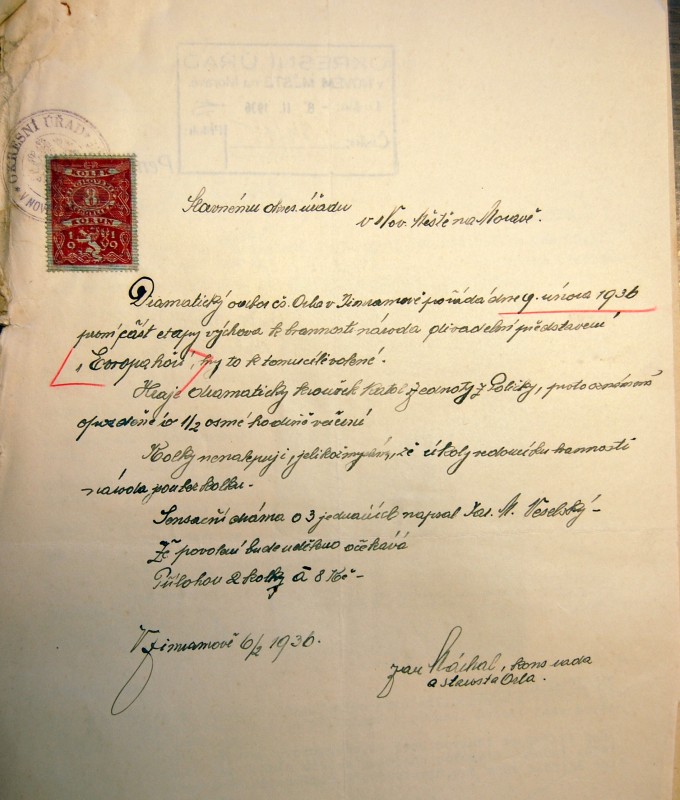 OKRESNÍ ÚŘAD
V NOVÉM MĚSTĚ na Moravě
8 II 1936
OKRESNÍ ÚŘAD
V NOV
KOLEK
8
KORUN
1919
Slavnému okres. úřadu
v Nov. Městě na Moravě.
Dramatický odbor čs. Orla v Jimramově pořádá dne 9. února 1936
první část etapy výchova k brannosti národa divadelní představení
„Evropa hoří", hry to k tomu cíli volené.
Hraje dramatický kroužek Katol. jednoty z Poličky, proto oznámená
opozděně o 1/2 osmé hodině večerní
Kolky nenalepuji, jelikož myslím, že úkoly brannosti
národa jsou bez kolku.
Sensační dráma o 3 jednáních napsal Fat. M. Veselský –
Že povolení bude uděleno očekává
Přílohou 2 kolky á 8 Kč –
V Jimramově 6/2 1936.
Jan Máchal, kons. rada
a starosta Orla.